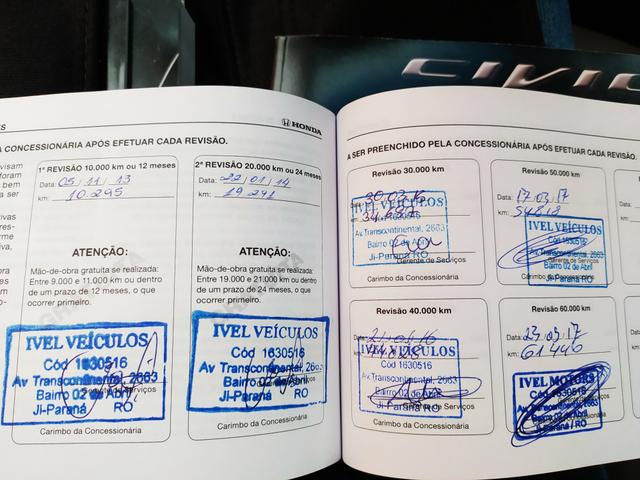 HONDA
CONCESSIONÁRIA APÓS EFETUAR CADA REVISÃO.
1ª REVISÃO 10.000 km ou 12 meses
Data: 05 / 11 / 13
km: 10.295
ATENÇÃO:
Mão-de-obra gratuita se realizada:
Entre 9.000 e 11.000 km ou dentro
de um prazo de 12 meses, o que
ocorrer primeiro.
IVEL VEÍCULOS
Cód 1630516
Av Transcontinental, 2663
Bairro 02 de Abril
Ji-Paraná RO
Carimbo da Concessionária
2ª REVISÃO 20.000 km ou 24 meses
Data: 22 / 01 / 14
km: 19.291
ATENÇÃO:
Mão-de-obra gratuita se realizada:
Entre 19.000 e 21.000 km ou dentro
de um prazo de 24 meses, o que
ocorrer primeiro.
IVEL VEÍCULOS
Cód 1630516
Av Transcontinental, 2663
Bairro 02 de Abril
Ji-Paraná RO
Carimbo da Concessionária
CIVIC
A SER PREENCHIDO PELA CONCESSIONÁRIA APÓS EFETUAR CADA REVISÃO.
Revisão 30.000 km
IVEL VEÍCULOS
Av Transcontinental, 2663
Bairro 02 de Abril
Gerente de Serviços
Ji-Paraná RO
Carimbo da Concessionária
Revisão 50.000 km
Data: 17.03.17
km: 54812
IVEL VEÍCULOS
Cód 1630516
Av Transcontinental, 2663
Bairro 02 de Abril
Ji-Paraná RO
Carimbo da Concessionária
Revisão 40.000 km
IVEL VEÍCULOS
Cód 1630516
Av Transcontinental, 2663
Bairro 02 de Abril
Ji-Paraná RO
Carimbo da Concessionária
Revisão 60.000 km
km: 61446
IVEL MOTORS
Cód 1630516
Av Transcontinental, 2663
Bairro 02 de Abril
Ji-Paraná / RO
Carimbo da Concessionária